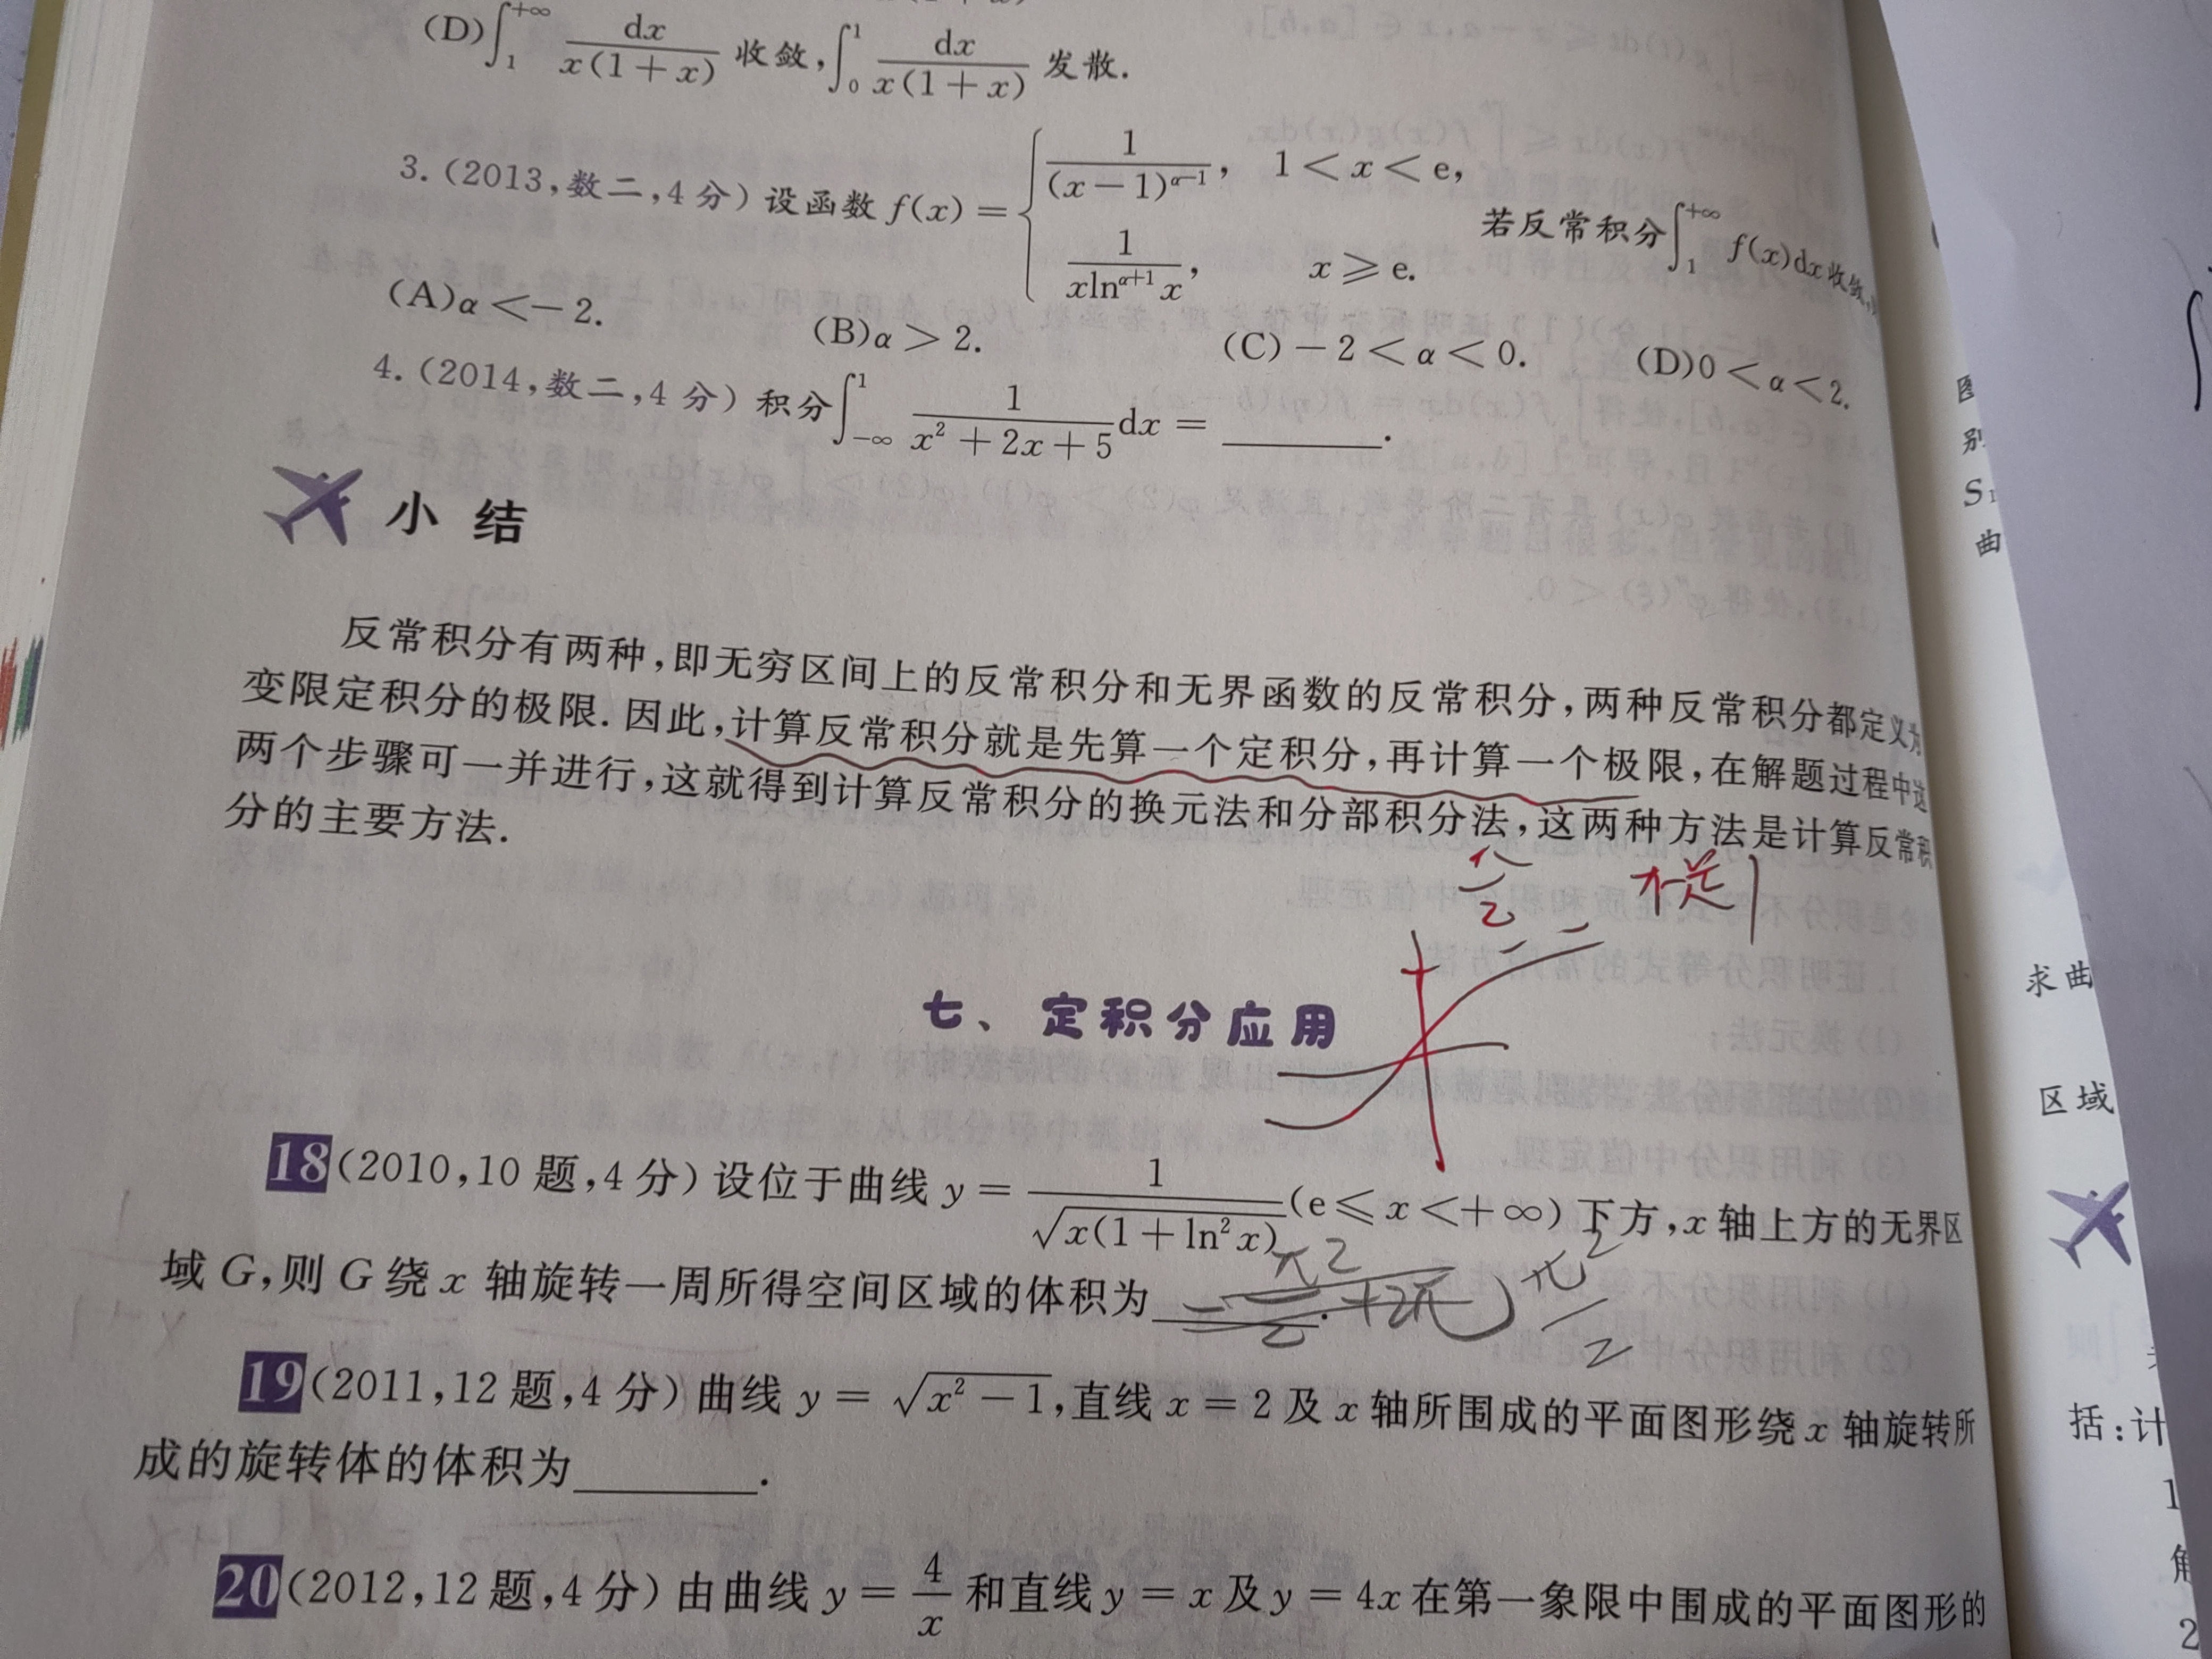 (D)∫₁^{+∞} dx/x(1+x) 收敛,∫₀¹ dx/x(1+x) 发散.
3.(2013,数二,4分)设函数 f(x)={1/(x-1)^{α-1}, 1<x<e, 1/(xln^{α+1}x), x⩾e. 若反常积分∫₁^{+∞} f(x)dx收敛,
(A)α<-2. (B)α>2. (C)-2<α<0. (D)0<α<2.
4.(2014,数二,4分)积分∫_{-∞}^1 1/(x²+2x+5)dx=______.
小结
反常积分有两种,即无穷区间上的反常积分和无界函数的反常积分,两种反常积分都定义为
变限定积分的极限.因此,计算反常积分就是先算一个定积分,再计算一个极限,在解题过程中这
两个步骤可一并进行,这就得到计算反常积分的换元法和分部积分法,这两种方法是计算反常积
分的主要方法.
七、定积分应用
18(2010,10题,4分)设位于曲线 y=1/√(x(1+ln²x))(e⩽x<+∞)下方,x轴上方的无界区
域G,则G绕x轴旋转一周所得空间区域的体积为______. π²/2
19(2011,12题,4分)曲线 y=√(x²-1),直线 x=2及x轴所围成的平面图形绕x轴旋转所
成的旋转体的体积为______.
20(2012,12题,4分)由曲线 y=4/x 和直线 y=x及y=4x在第一象限中围成的平面图形的
图
别
S₁
曲
求曲
区域
括:计
1
解
2